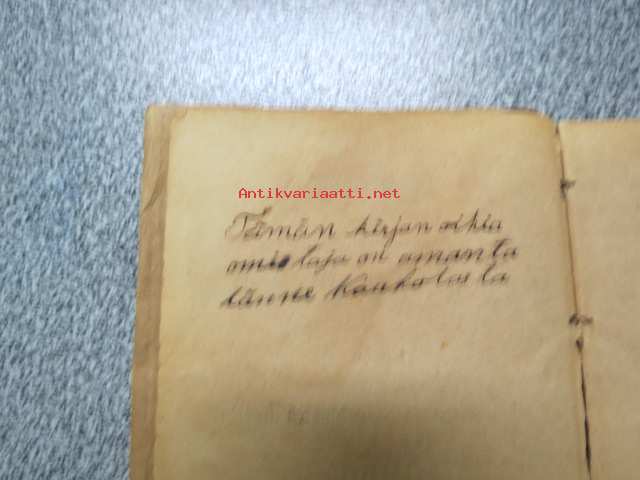 Antikvariaatti.net
Tämän kirjan oikia
omistaja on amanta
länne Kaukolasta